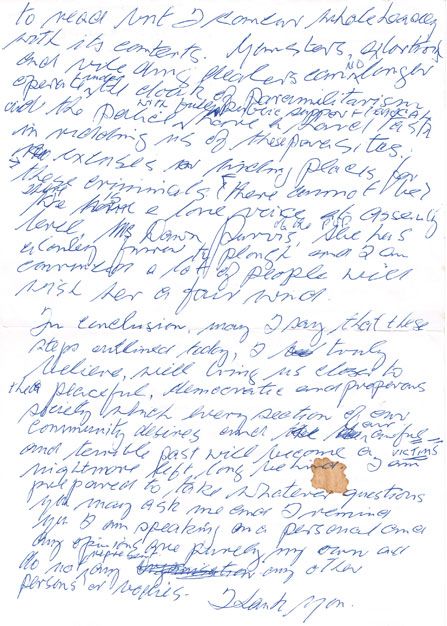 to read but I concur wholeheartedly
with its contents. Gangsters, extortion
and vile drug dealers can no longer
operate under the cloak of paramilitarism
and the police with full public support have a hard task
in ridding us of these parasites.
No excuses or hiding places for
these criminals (there cannot be)
a lone voice at Assembly
level, Ms Dawn Purvis, she has
a lonely furrow to plough and I am
convinced a lot of people will
wish her a fair wind.
In conclusion, may I say that these
steps outlined today, I truly
believe, will bring us closer to
the peaceful, democratic and prosperous
society which every section of our
community desires and our awful
and terrible past will become a victims
nightmare left long behind. I am
prepared to take whatever questions
you may ask me and I remind
you I am speaking in a personal and
any opinions are purely my own and
do not represent any other
persons or bodies.
Thank you.